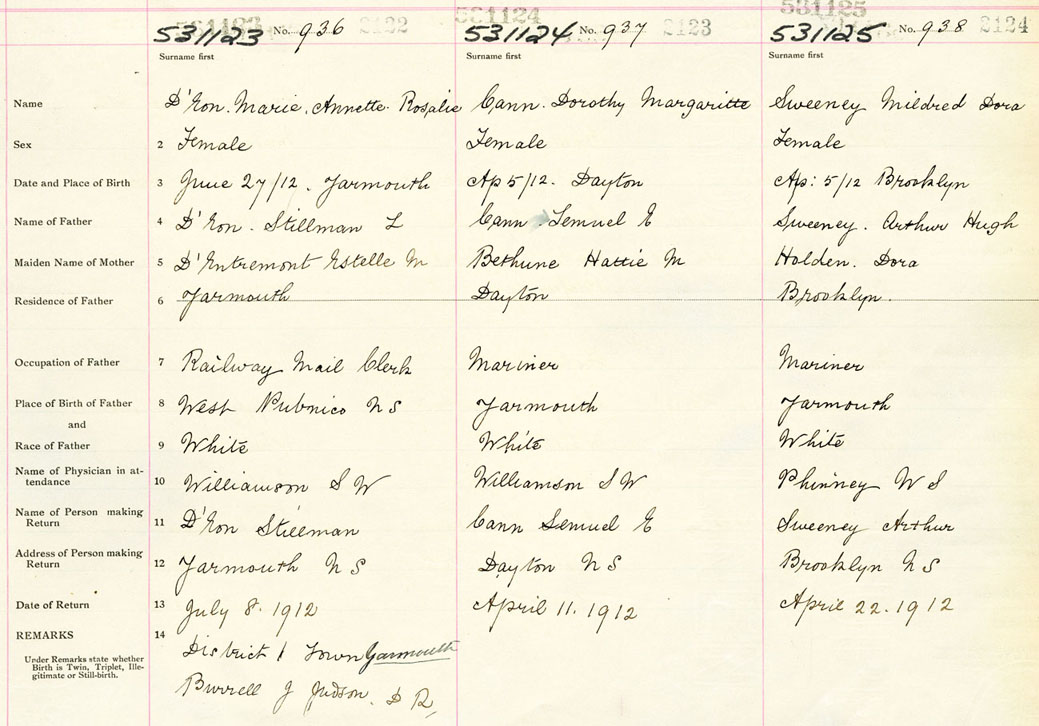 531123 531124 531125
531123 No. 936 2122 531124 No. 937 2123 531125 No. 938 2124
Surname first Surname first Surname first
Name D'Eon. Marie. Annette. Rosalie Cann. Dorothy Margaritte Sweeney Mildred Dora
Sex 2 Female Female Female
Date and Place of Birth 3 June 27/12. Yarmouth Ap 5/12. Dayton Ap: 5/12 Brooklyn
Name of Father 4 D'Eon. Stillman L Cann Lemuel E Sweeney. Arthur Hugh
Maiden Name of Mother 5 D'Entremont Estelle M Bethune Hattie M Holden. Dora
Residence of Father 6 Yarmouth Dayton Brooklyn.
Occupation of Father 7 Railway Mail Clerk Mariner Mariner
Place of Birth of Father 8 West Pubnico N S Yarmouth Yarmouth
and
Race of Father 9 White White White
Name of Physician in at-
tendance 10 Williamson S W Williamson S W Phinney W S
Name of Person making
Return 11 D'Eon Stillman Cann Lemuel E Sweeney Arthur
Address of Person making
Return 12 Yarmouth N S Dayton N S Brooklyn N S
Date of Return 13 July 8. 1912 April 11. 1912 April 22. 1912
REMARKS 14 District 1 Town Yarmouth
Under Remarks state whether
Birth is Twin, Triplet, Ille-
gitimate or Still-birth.
Burrell J Judson. D R,